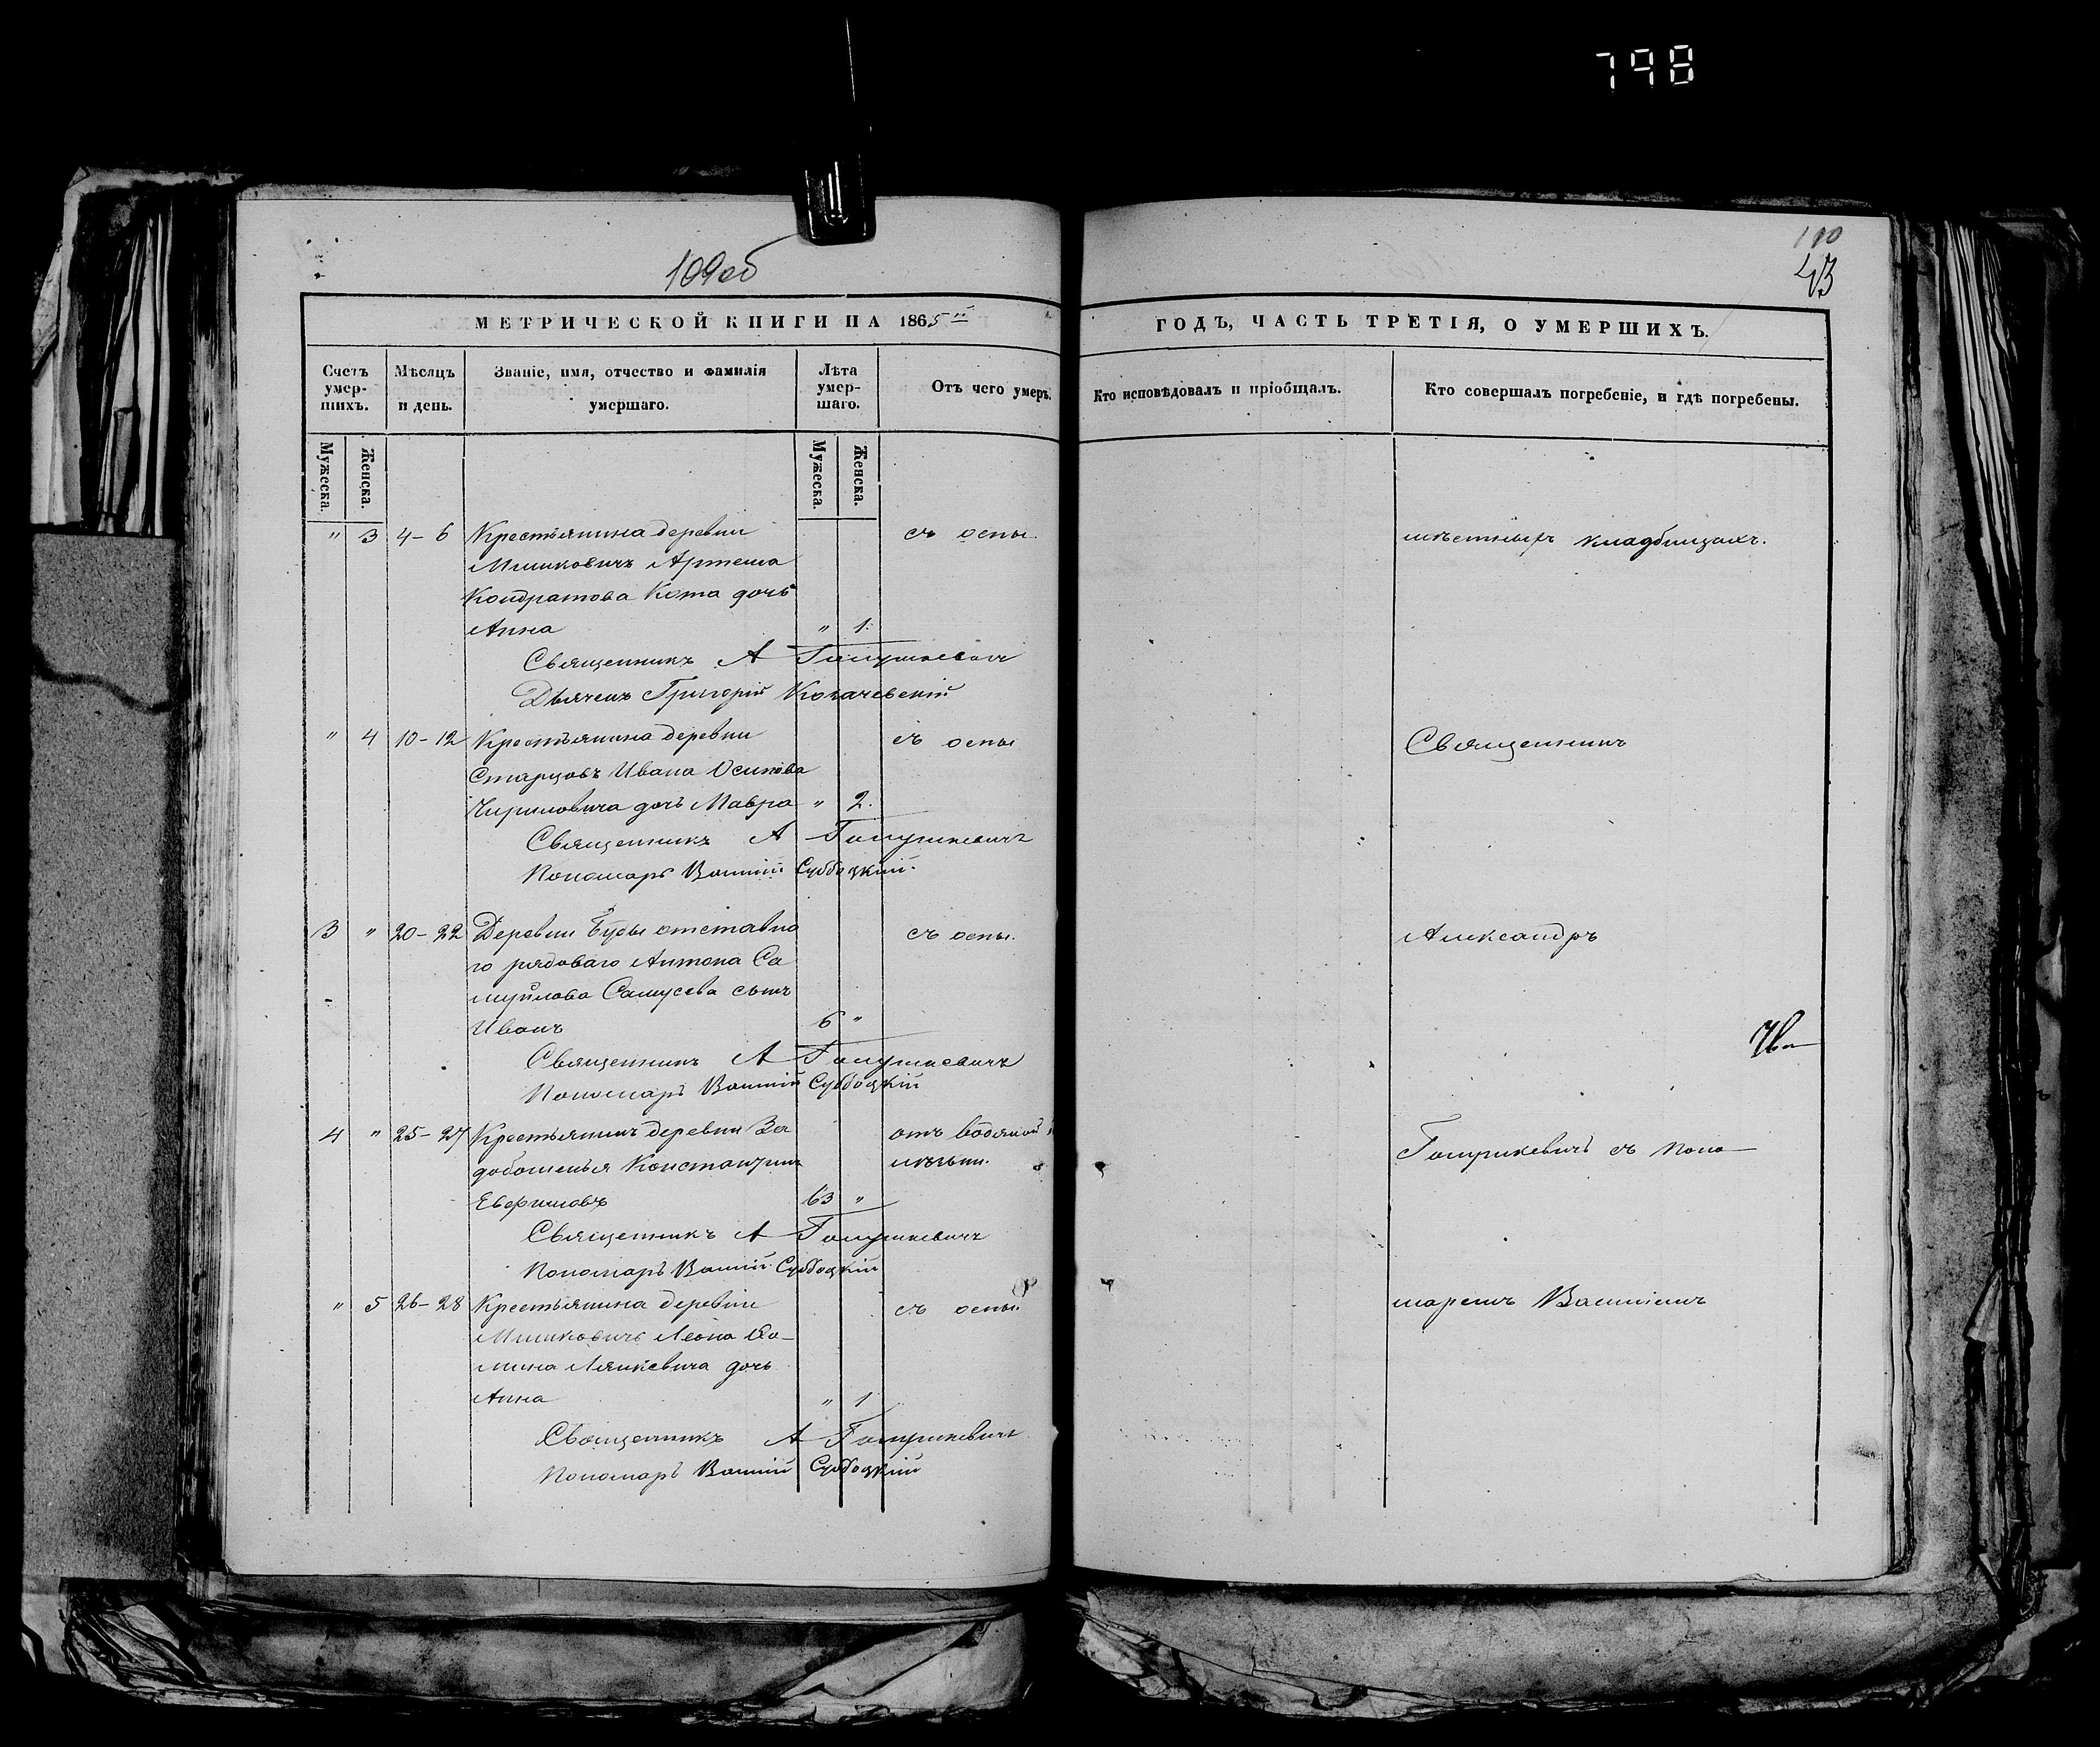 798
109об
110
43
МЕТРИЧЕСКОЙ КНИГИ НА 1865й
ГОДЪ, ЧАСТЬ ТРЕТІЯ, О УМЕРШИХЪ.
Счетъ умер-шихъ.
Мѣсяцъ и день.
Званіе, имя, отчество и фамилія умершаго.
Лѣта умер-шаго.
Отъ чего умеръ.
Кто исповѣдовалъ и пріобщалъ.
Кто совершалъ погребеніе, и гдѣ погребены.
Мужеска. Женска.
Мужеска. Женска.
" 3 4-6 Крестьянина деревни съ оспы.
Мишковичъ Артема
Кондратова Кота дочь
Анна " 1.
Священникъ А Голушкевичъ
Дьячекъ Григорій
мѣстныхъ кладбищахъ.
" 4 10-12 Крестьянина деревни съ оспы
Старцовъ Ивана Осипова
дочь Мавра " 2.
Священникъ А Голушкевичъ
Пономарь Василій Субоцкій.
Священникъ
3 " 20-22 Деревни Буды отставно съ оспы.
го рядоваго Антона Са
муйлова Самусева сынъ
Иванъ 6 "
Священникъ А Голушкевичъ
Пономарь Василій Субоцкій
Александръ
4 " 25-27 Крестьянинъ деревни За отъ водяной
Константинъ
Евфимовъ 63 "
Священникъ А Голушкевичъ
Пономарь Василій Субоцкій
Голушкевичъ съ поно
" 5 26-28 Крестьянина деревни съ оспы.
Мишковичъ Леона Ѳо-
мина дочь
Анна " 1
Священникъ А Голушкевичъ
Пономарь Василій Субоцкій
маремъ Василіемъ